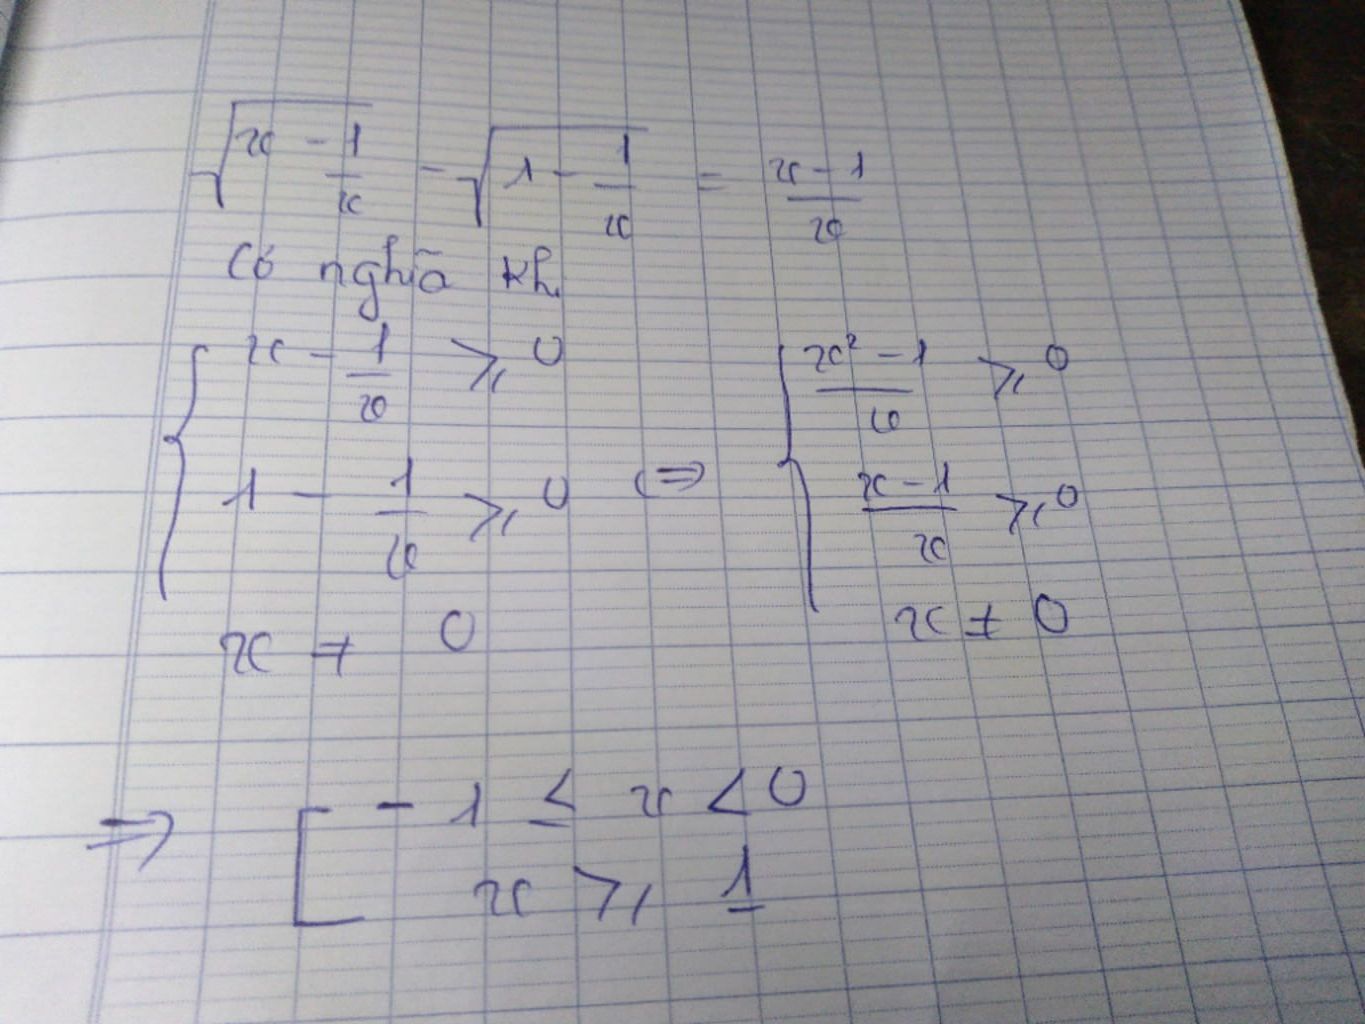 √(x - 1/x) - √(1 - 1/x) = (x - 1)/x
Có nghĩa kh
{ x - 1/x ⩾ 0
1 - 1/x ⩾ 0
x ≠ 0
⇔ { (x² - 1)/x ⩾ 0
(x - 1)/x ⩾ 0
x ≠ 0
⇒ [ -1 ≤ x < 0
x ⩾ 1